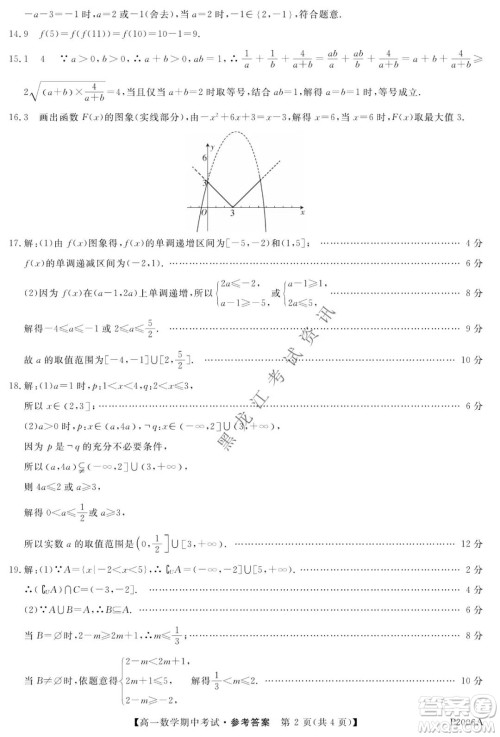 -a=3(舍去),当a+1=2时,a=1或a=-1(舍去),此时B={2,-1},符合题意.
14.9 f(5)=f(f(11))=f(10)=10-1=9.
15.1 4 ∵a>0,b>0,∴a+b>0,ab=1,∴1/a+1/b+4/(a+b)=(a+b)/ab+4/(a+b)=a+b+4/(a+b)≥
2√((a+b)×4/(a+b))=4,当且仅当a+b=2时取等号,结合ab=1,解得a=b=1时,等号成立.
16.3 画出函数F(x)的图象(实线部分),由-x²+6x+3=x-3,解得x=6,当x=6时,F(x)取最大值3.
y
6
3
O
3
x
17.解:(1)由f(x)图象得,f(x)的单调递增区间为[-5,-2)和(1,5]; 4分
f(x)的单调递减区间为(-2,1). 6分
(2)因为f(x)在(a-1,2a)上单调递增,所以{2a≤-2, a-1≥-5, 或{2a≤5, a-1≥1, 8分
解得-4≤a≤-1或2≤a≤5/2. 9分
故a的取值范围为[-4,-1]∪[2,5/2]. 10分
18.解:(1)a=1时,p:1<x<4,q:2<x≤3,
所以x∈(2,3]; 6分
(2)a>0时,p:a<x<4a,¬q:x≤2或x>3, 8分
因为p是¬q的充分不必要条件,
所以(a,4a)⫋(-∞,2]∪(3,+∞),
则4a≤2或a≥3,
所以实数a的取值范围是(0,1/2]∪[3,+∞). 12分
19.解:(1)∵A={x|-2<x<5},∴∁UA=(-∞,-2]∪[5,+∞). 2分
∴(∁UA)∩C=(-3,-2]. 4分
(2)∵A∪B=A,∴B⊆A. 6分
当B=∅时,2-m≥2m+1,∴m≤1/3; 9分
当B≠∅时,依题意得{2-m<2m+1, 2-m≥-2, 2m+1≤5, 解得1/3<m≤2.
黑龙江考试资讯
【高一数学期中考试·参考答案 第2页(共4页)】
B2026A
答案圈
MXQE.COM